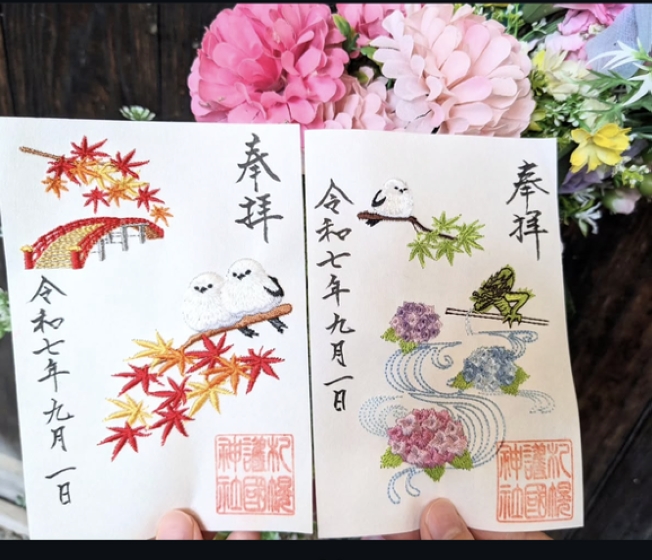 奉拝
令和七年九月一日
札幌
護國
神社
奉拝
令和七年九月一日
札幌
護國
神社